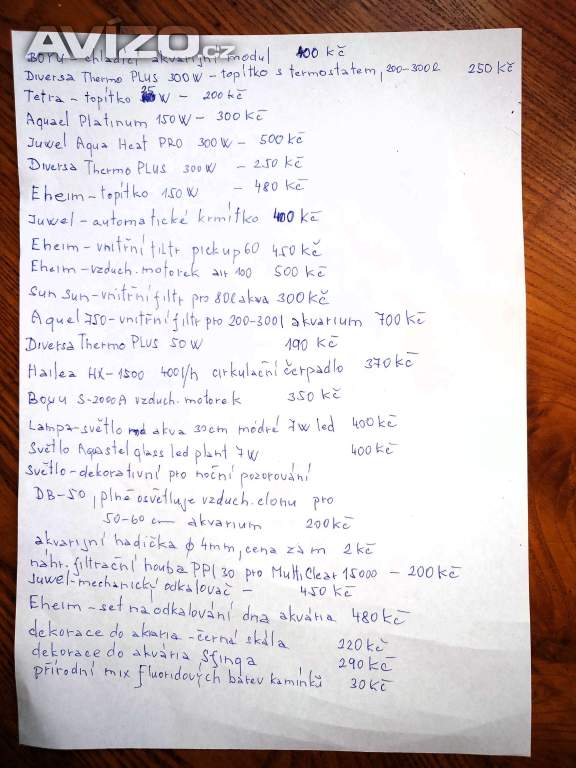 AVÍZO.cz
BOYU - chladící akvarijní modul 400 Kč
Diversa Thermo PLUS 300W - topítko s termostatem, 200-300l 250 Kč
Tetra - topítko 25W - 200 Kč
Aquael Platinum 150W - 300 Kč
Juwel Aqua Heat PRO 300W - 500 Kč
Diversa Thermo PLUS 300W - 250 Kč
Eheim - topítko 150W - 480 Kč
Juwel - automatické krmítko 400 Kč
Eheim - vnitřní filtr pickup 60 450 Kč
Eheim - vzduch. motorek air 100 500 Kč
Sun Sun - vnitřní filtr pro 80l akva 300 Kč
Aquel 750 - vnitřní filtr pro 200-300l akvarium 700 Kč
Diversa Thermo PLUS 50W 190 Kč
Hailea HX-1500 400l/h cirkulační čerpadlo 370 Kč
Boyu S-2000A vzduch. motorek 350 Kč
Lampa - světlo akva 30cm módré 7W led 400 Kč
Světlo Aqastel glass led plant 7W 400 Kč
světlo - dekorativní pro noční pozorování
DB-50, plně osvětluje vzduch. clonu pro
50-60 cm akvarium 200 Kč
akvarijní hadička ϕ 4mm, cena za m 2 Kč
náhr. filtrační houba PPI 30 pro MultiClear 15000 - 200 Kč
Juwel - mechanický odkalovač - 450 Kč
Eheim - set na odkalování dna akvária 480 Kč
dekorace do akvaria - černá skála 220 Kč
dekorace do akvária Sfinga 290 Kč
přírodní mix fluoridových barev kamínků 30 Kč